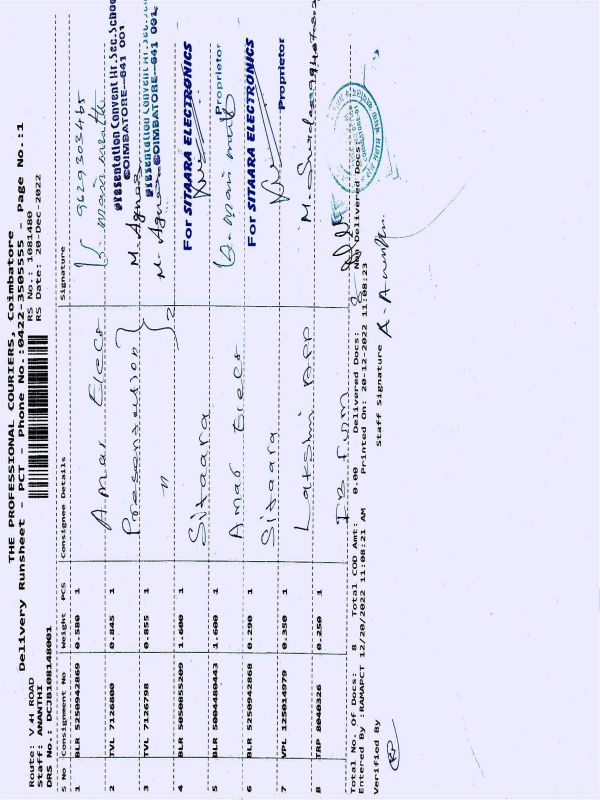 THE PROFESSIONAL COURIERS, Coimbatore
Delivery Runsheet - PCT - Phone No.:0422-3505555 - Page No.:1
Route: V.H ROAD
RS No.: 1081480
Staff: ANANTHI
RS Date: 20-Dec-2022
DRS No.: DCJB108148001
S No Consignment No Weight PCS Consignee Details Signature
1 BLR 5250942869 0.580 1 Amar Elecs 9629303465
2 TVL 7126800 0.845 1 Presentation M. Agnes
Presentation Convent Hr.Sec.School
COIMBATORE-641 001
3 TVL 7126798 0.855 1 " M. Agnes
Presentation Convent Hr.Sec.
COIMBATORE-641 001
4 BLR 5050855209 1.600 1 Sitaara
For SITAARA ELECTRONICS
Proprietor
5 BLR 5004480443 1.600 1 Amar Elecs
6 BLR 5250942868 0.290 1 Sitaara
For SITAARA ELECTRONICS
Proprietor
7 VPL 125014979 0.350 1 Lakshmi App
8 TRP 8040326 0.250 1 IB Furn
Total No Of Docs: 8 Total COD Amt: 0.00 Delivered Docs: 8 Non Delivered Docs:
Entered By :RAMAPCT 12/20/2022 11:08:21 AM Printed On: 20-12-2022 11:08:23
Verified By Staff Signature